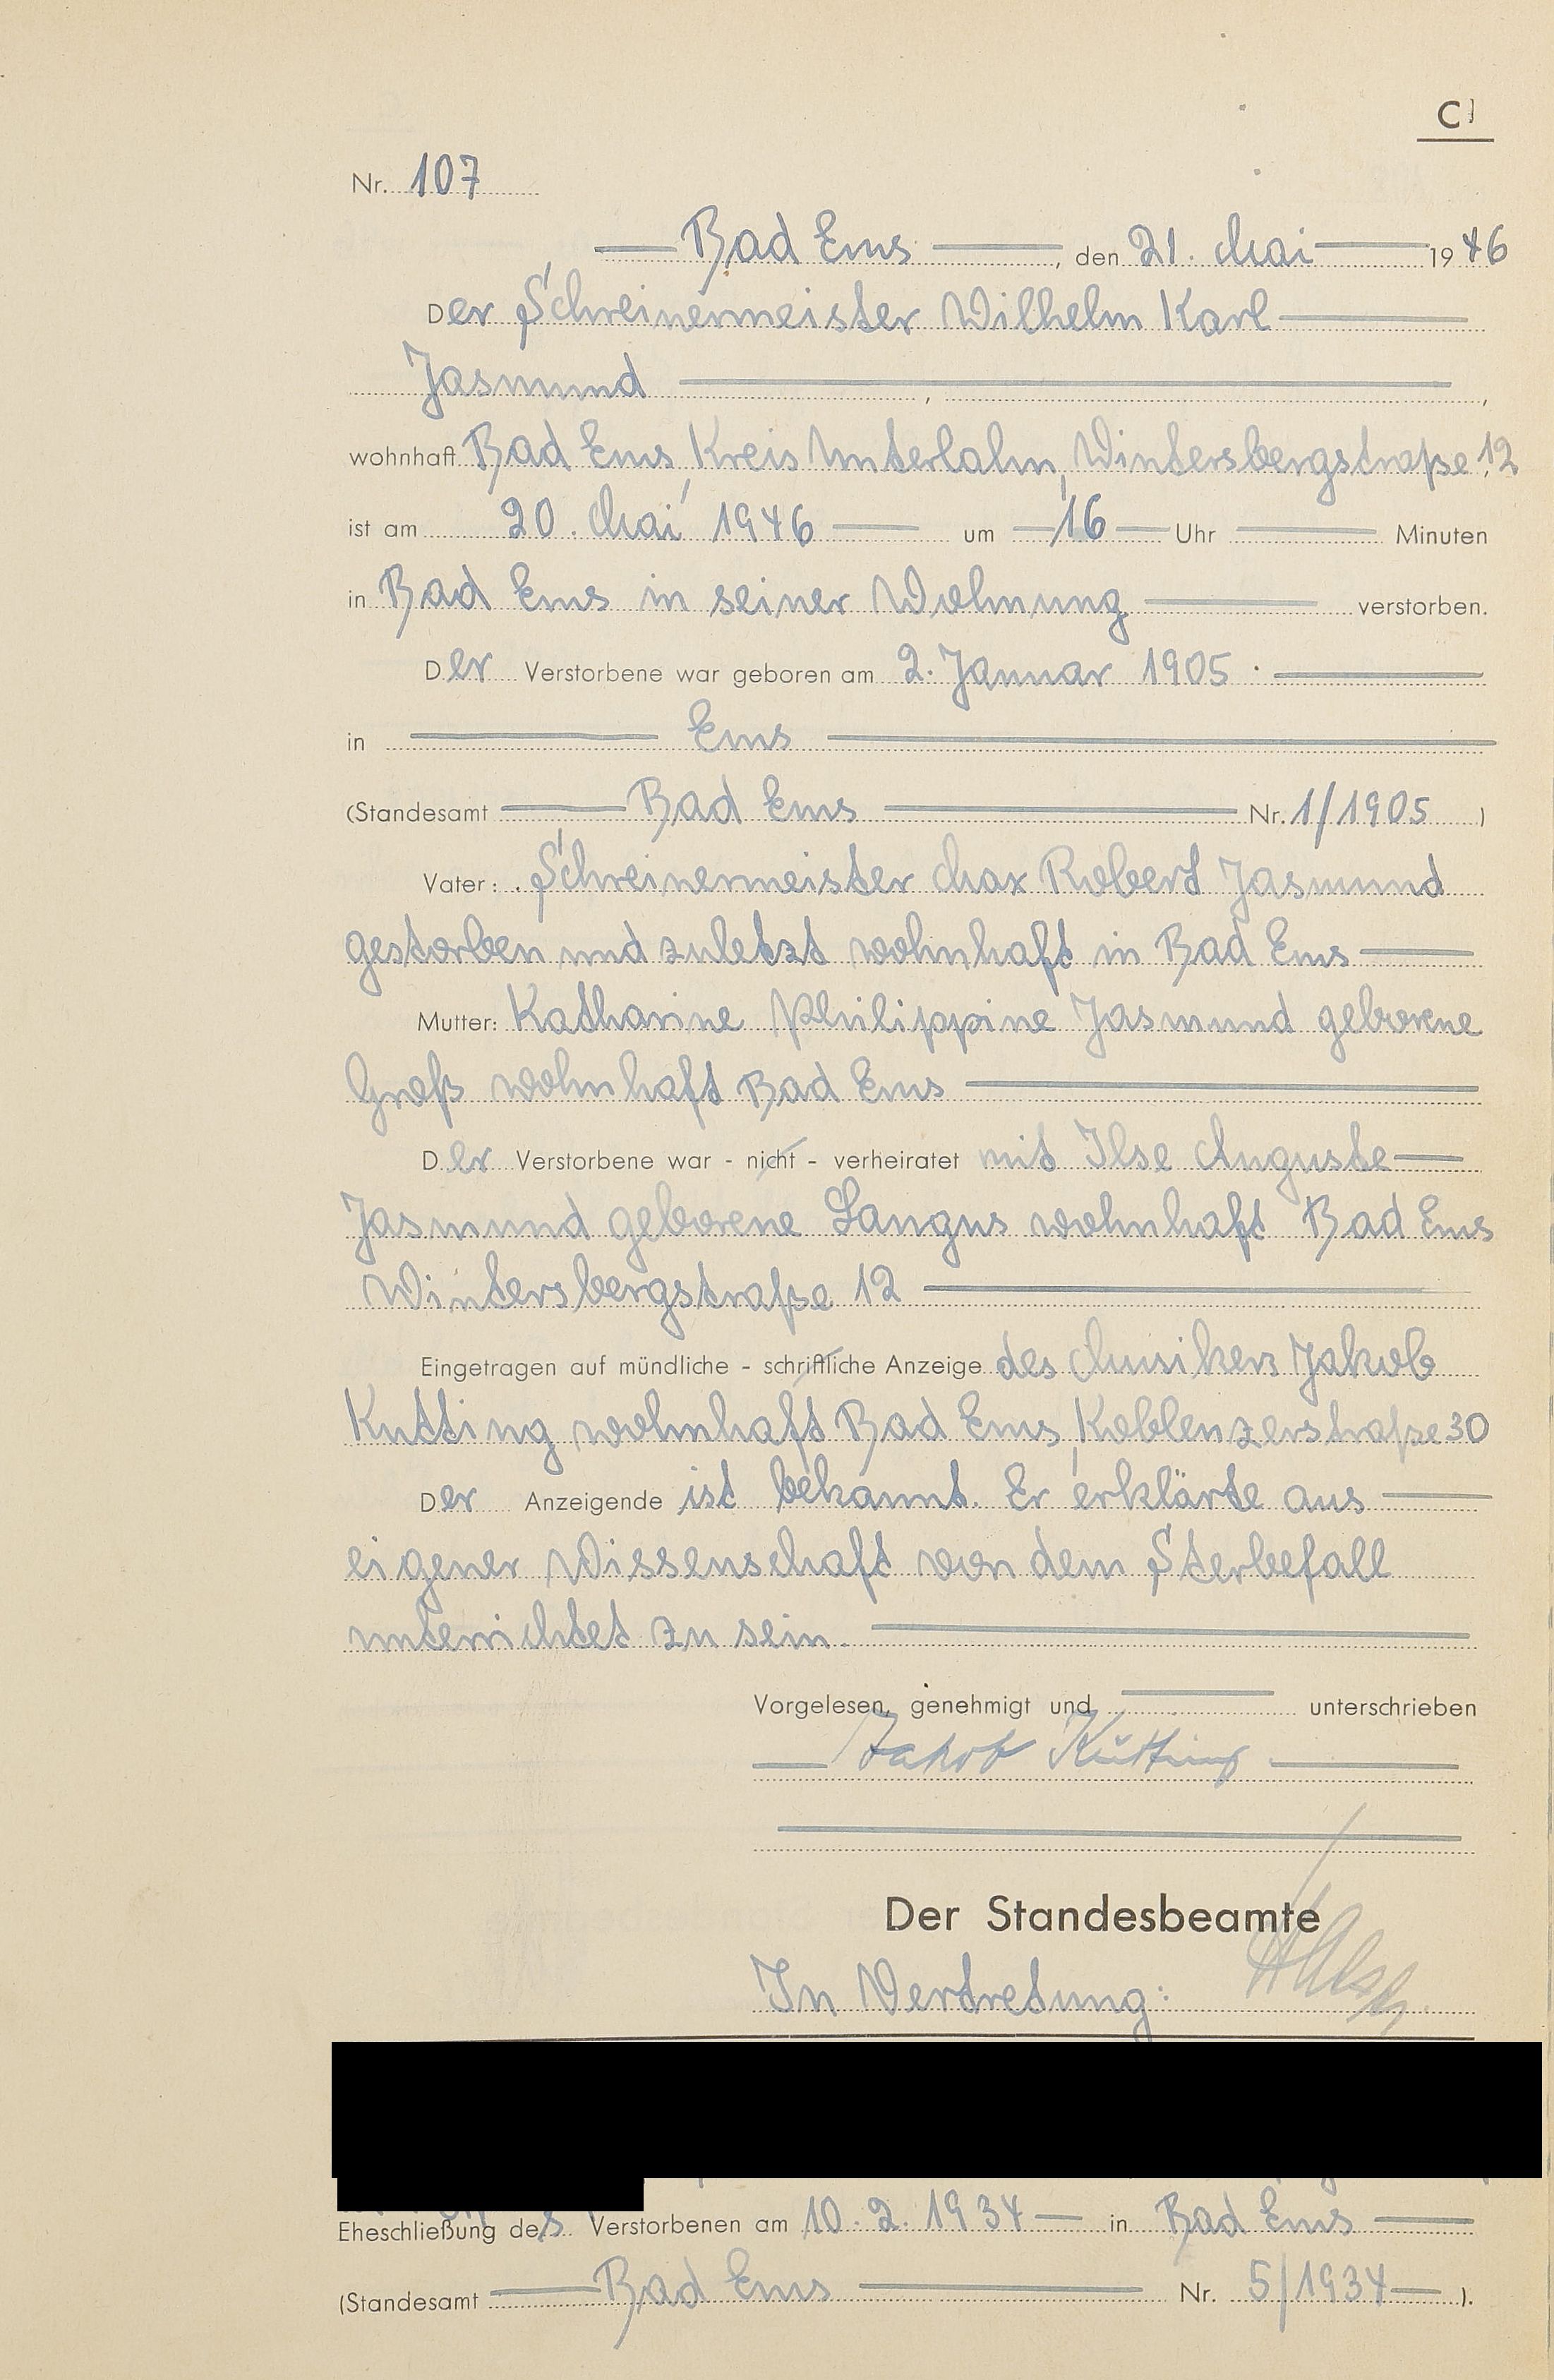 C
Nr. 107
Bad Ems, den 21. Mai 1946
Der Schreinermeister Wilhelm Karl
Jasmund , ,
wohnhaft Bad Ems, Kreis Unterlahn, Wintersbergstraße 12,
ist am 20. Mai 1946 um 16 Uhr Minuten
in Bad Ems in seiner Wohnung verstorben.
Der Verstorbene war geboren am 2. Januar 1905
in Ems
(Standesamt Bad Ems Nr. 1/1905 )
Vater: Schreinermeister Max Robert Jasmund
gestorben und zuletzt wohnhaft in Bad Ems
Mutter: Katharine Philippine Jasmund geborene
Groß wohnhaft Bad Ems
Der Verstorbene war - nicht - verheiratet mit Ilse Auguste
Jasmund geborene Langus wohnhaft Bad Ems
Wintersbergstraße 12
Eingetragen auf mündliche - schriftliche Anzeige des Musikers Jakob
Kutting wohnhaft Bad Ems, Koblenzerstraße 30
Der Anzeigende ist bekannt. Er erklärte aus
eigener Wissenschaft von dem Sterbefall
unterrichtet zu sein.
Vorgelesen, genehmigt und unterschrieben
Jakob Kutting
Der Standesbeamte
In Vertretung:
Eheschließung des Verstorbenen am 10.2.1934 in Bad Ems
(Standesamt Bad Ems Nr. 5/1934 ).